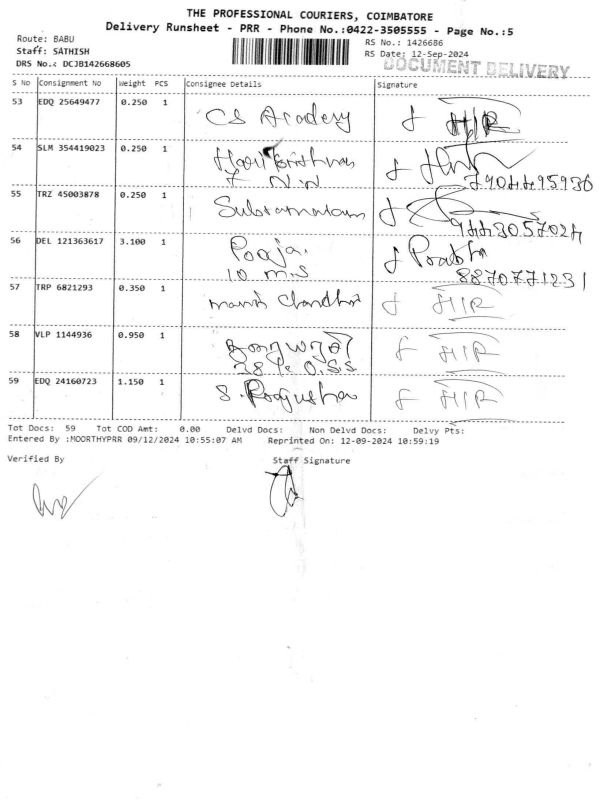 THE PROFESSIONAL COURIERS, COIMBATORE
Delivery Runsheet - PRR - Phone No.:0422-3505555 - Page No.:5
Route: BABU
Staff: SATHISH
DRS No.: DCJB142668605
RS No.: 1426686
RS Date: 12-Sep-2024
DOCUMENT DELIVERY
S No Consignment No Weight PCS Consignee Details Signature
53 EDQ 25649477 0.250 1 CS Academy H/R
54 SLM 354419023 0.250 1 Hari
55 TRZ 45003878 0.250 1
56 DEL 121363617 3.100 1 Pooja. Prabha
10 m.s 8870771231
57 TRP 6821293 0.350 1 H/R
58 VLP 1144936 0.950 1 H/R
59 EDQ 24160723 1.150 1 S. H/R
Tot Docs: 59 Tot COD Amt: 0.00 Delvd Docs: Non Delvd Docs: Delvy Pts:
Entered By :MOORTHYPRR 09/12/2024 10:55:07 AM Reprinted On: 12-09-2024 10:59:19
Verified By Staff Signature